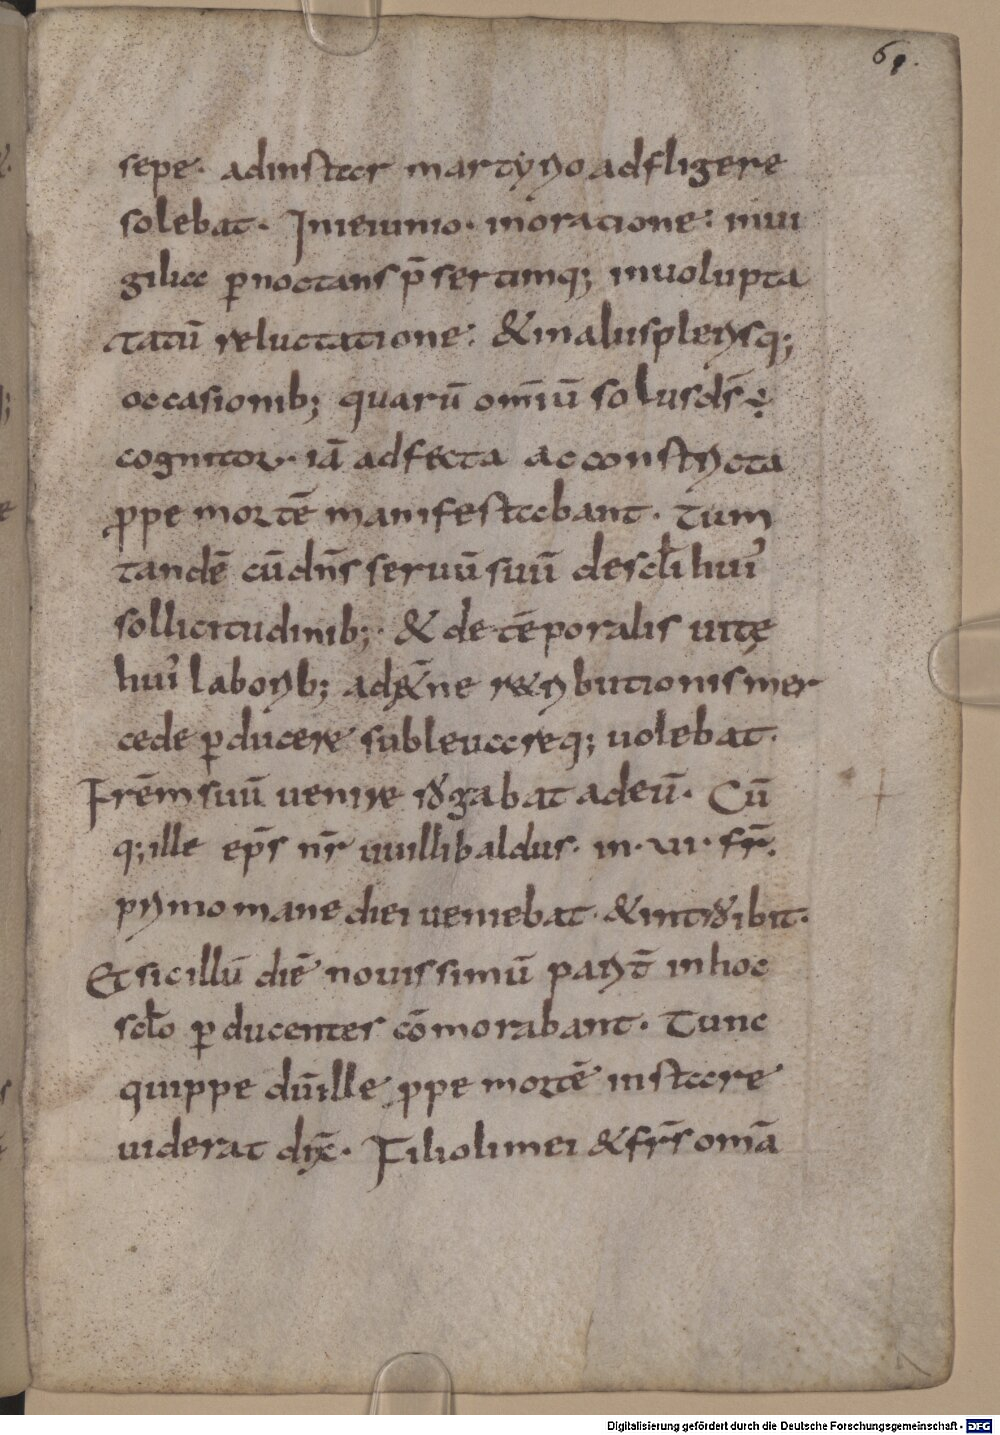 61.
sepe. adinstar martyrio adfligere
solebat. Inieiunio. inoratione: inui
gilia ꝑnoctans p̄sertimq; inuolupta
tatū reluctatione: &inaliusplerisq;
occasionib; quarū omīū solusds̄ ÷
cognitor. iā adfecta acconstricta
ꝓpe mortē manifestabant. Tum
tandē cūdn̄s seruū suū desclī hui᾽
sollicitudinib; & de tēporalis uitę
hui᾽ laborib; ad&̄ne r&ributionis mer
cede ꝑducere subleuareq; uolebat.
Frēm suū uenire rogabat adeū. Cū
q; ille ep̄s nr̄ uuillibaldus. in. vi. fr̄.
primo mane diei ueniebat. &introibit.
Et sic illū diē nouissimū parit̄ inhoc
scło ꝑducentes cōmorabant. Tunc
quippe dūille ꝓpe mortē instare
uiderat dix̄. Filiolimei &frs̄ omā
Digitalisierung gefördert durch die Deutsche Forschungsgemeinschaft - DFG